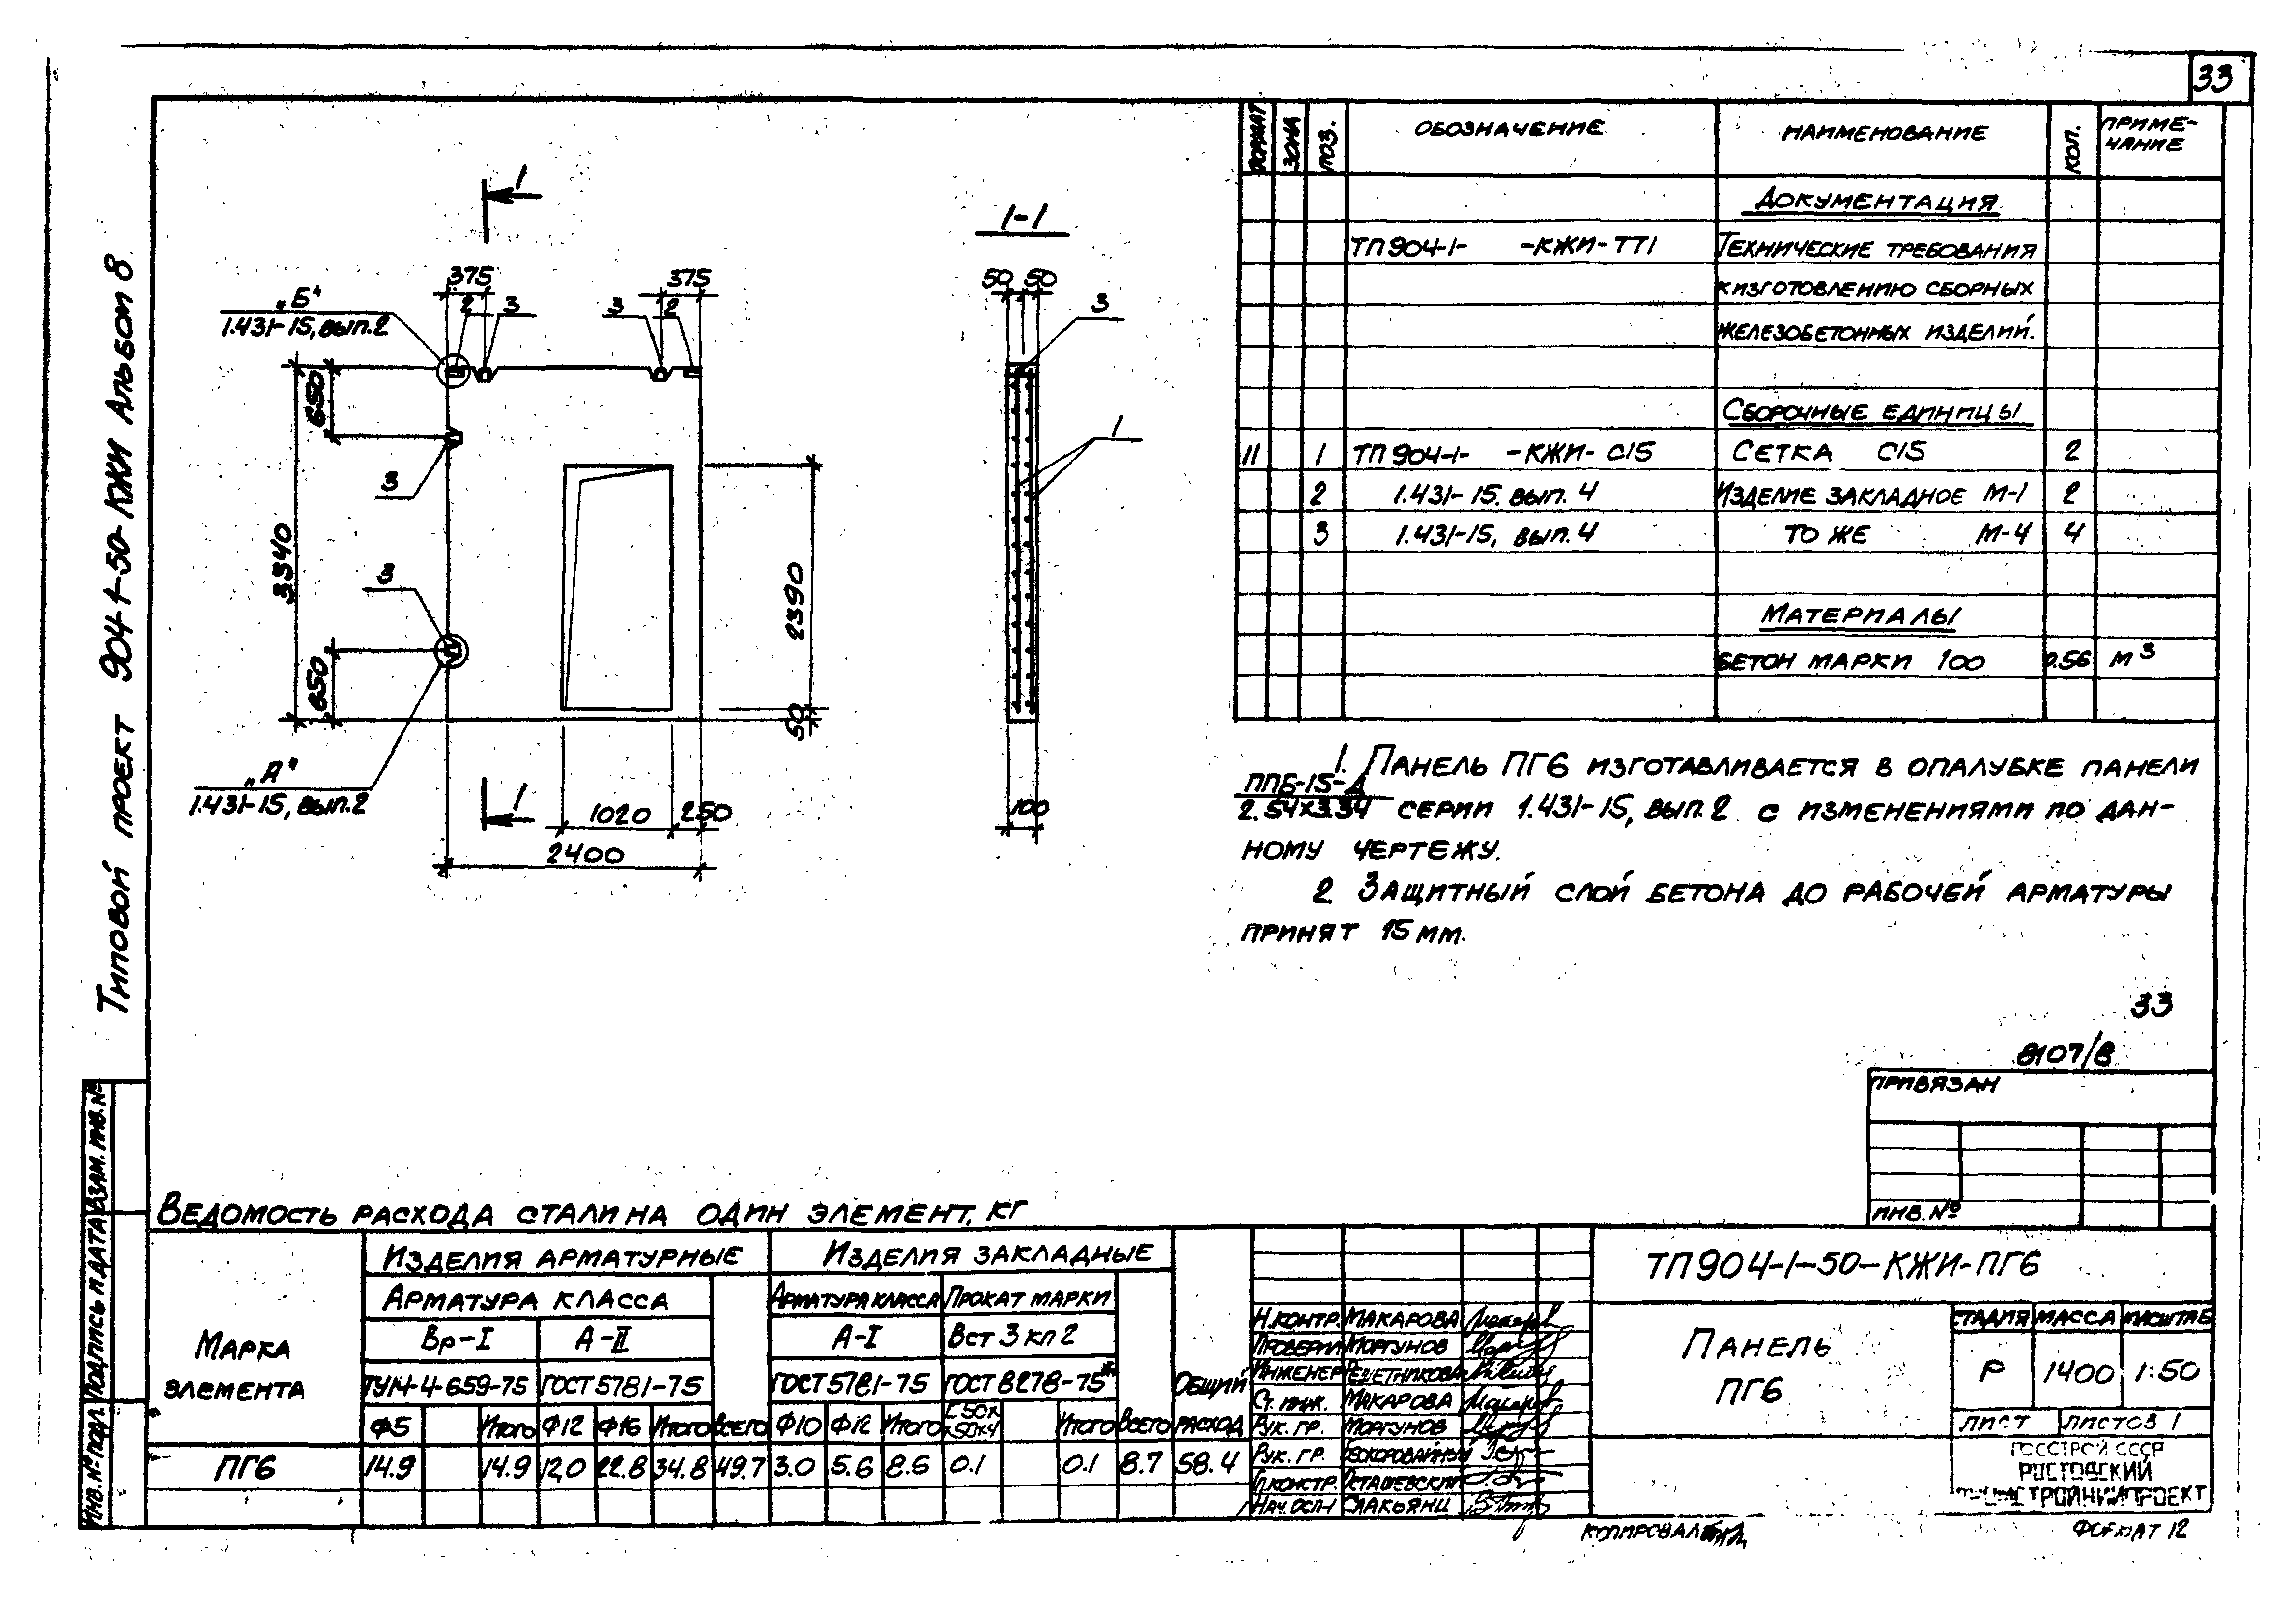 33
Типовой проект 904-1-50-КЖИ Альбом 8
1
1-1
375
375
2
3
3
2
„Б“
1.431-15, вып.2
650
3
3340
3
650
„А“
1.431-15, вып.2
2390
50
1
1020
250
2400
50
50
3
1
100
ФОРМАТ
ЗОНА
ПОЗ.
ОБОЗНАЧЕНИЕ
НАИМЕНОВАНИЕ
КОЛ.
ПРИМЕ-
ЧАНИЕ
ДОКУМЕНТАЦИЯ
ТП904-1- -КЖИ-ТТ1 ТЕХНИЧЕСКИЕ ТРЕБОВАНИЯ
К ИЗГОТОВЛЕНИЮ СБОРНЫХ
ЖЕЛЕЗОБЕТОННЫХ ИЗДЕЛИЙ.
СБОРОЧНЫЕ ЕДИНИЦЫ
11 1 ТП904-1- -КЖИ-С15 СЕТКА С15 2
2 1.431-15. вып. 4 ИЗДЕЛИЕ ЗАКЛАДНОЕ М-1 2
3 1.431-15, вып. 4 ТО ЖЕ М-4 4
МАТЕРИАЛЫ
БЕТОН МАРКИ 100 0.56 м³
1. ПАНЕЛЬ ПГ6 ИЗГОТАВЛИВАЕТСЯ В ОПАЛУБКЕ ПАНЕЛИ
ППБ-15-Д
2.54х3.34 СЕРИИ 1.431-15, вып.2 С ИЗМЕНЕНИЯМИ ПО ДАН-
НОМУ ЧЕРТЕЖУ.
2. ЗАЩИТНЫЙ СЛОЙ БЕТОНА ДО РАБОЧЕЙ АРМАТУРЫ
ПРИНЯТ 15 ММ.
33
8107/8
ПРИВЯЗАН
ИНВ.№
ВЗАМ. ИНВ. №
ПОДПИСЬ И ДАТА
ИНВ. № ПОДЛ.
ВЕДОМОСТЬ РАСХОДА СТАЛИ НА ОДИН ЭЛЕМЕНТ, КГ
МАРКА
ЭЛЕМЕНТА
ИЗДЕЛИЯ АРМАТУРНЫЕ
ИЗДЕЛИЯ ЗАКЛАДНЫЕ
ОБЩИЙ
РАСХОД
АРМАТУРА КЛАССА
АРМАТУРА КЛАССА
ПРОКАТ МАРКИ
Вр-I
А-II
А-I
Вст 3 кп 2
ТУ14-4-659-75
ГОСТ 5781-75
ГОСТ 5781-75
ГОСТ 8278-75*
Ф5 Итого Ф12 Ф16 Итого Всего Ф10 Ф12 Итого С 50х Итого Всего
х50х4
ПГ6 14.9 14.9 12.0 22.8 34.8 49.7 3.0 5.6 8.6 0.1 0.1 8.7 58.4
Н.КОНТР. МАКАРОВА
ПРОВЕРИЛ МОРГУНОВ
ИНЖЕНЕР РЕШЕТНИКОВА
СТ. ИНЖ. МАКАРОВА
РУК. ГР. МОРГУНОВ
РУК. ГР.
ГЛ.КОНСТР. ОСТАШЕВСКИЙ
НАЧ.ОСП-1
ТП904-1-50-КЖИ-ПГ6
ПАНЕЛЬ
ПГ6
СТАДИЯ МАССА МАСШТАБ
Р 1400 1:50
ЛИСТ ЛИСТОВ 1
ГОССТРОЙ СССР
РОСТОВСКИЙ
ПРОМСТРОЙНИИПРОЕКТ
КОПИРОВАЛ
ФОРМАТ 12